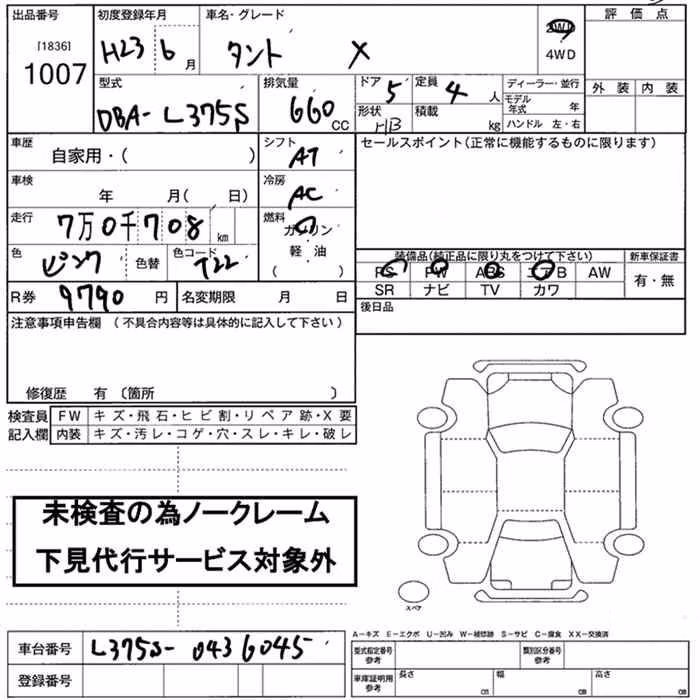 出品番号 初度登録年月 車名・グレード 評価点
[1836] H23 6月 タント X 2WD
1007 4WD
外装 内装
型式 排気量 ドア 5 定員 4人 ディーラー・並行
DBA-L375S 660 CC 形状 HB 積載 kg モデル年式 年
ハンドル 左・右
車歴 自家用・( ) シフト AT セールスポイント(正常に機能するものに限ります)
車検 年 月( 日) 冷房 AC
走行 7万0千708 km 燃料 ガソリン
軽・油
( )
色 ピンク 色替 色コード T22 装備品(純正品に限り丸をつけて下さい) 新車保証書
PS PW ABS エアB AW 有・無
SR ナビ TV カワ
R券 9790 円 名変期限 月 日 後日品
注意事項申告欄 (不具合内容等は具体的に記入して下さい)
修復歴 有 〔箇所 〕
検査員 FW キズ・飛石・ヒビ割・リペア跡・X要
記入欄 内装 キズ・汚レ・コゲ・穴・スレ・キレ・破レ
未検査の為ノークレーム
下見代行サービス対象外
スペア
A-キズ E-エクボ U-凹み W-補修跡 S-サビ C-腐食 XX-交換済
車台番号 L375S-0436045 型式指定番号 参考 類別区分番号 参考
登録番号 車庫証明用 参考 長さ cm 幅 cm 高さ cm